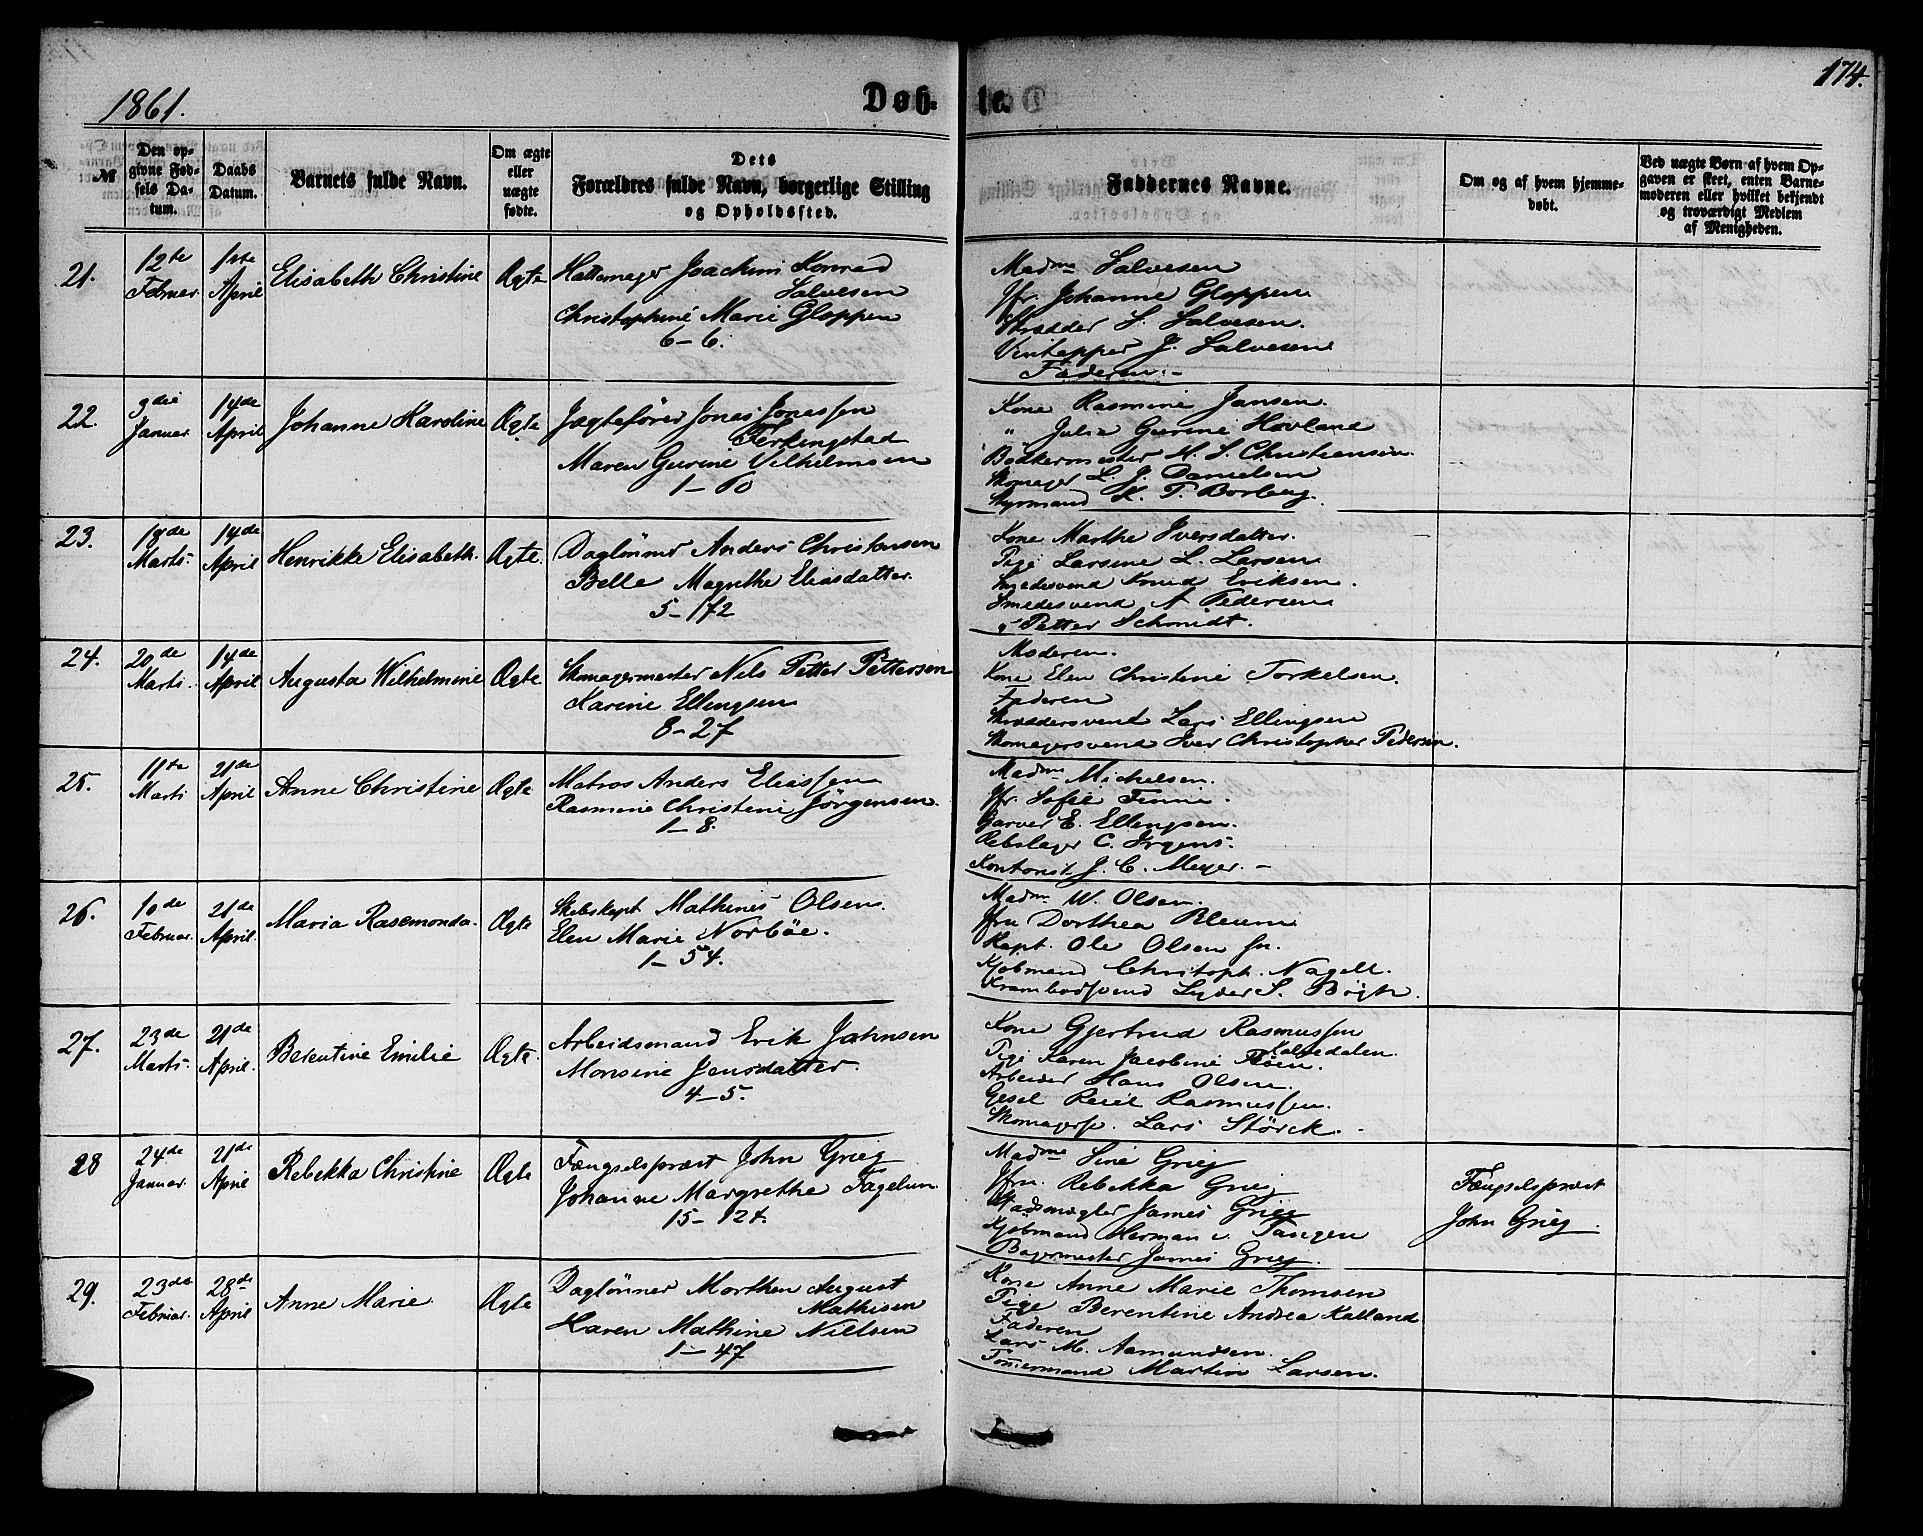 1861.
Døb-
te.
174.
№
Den op-
givne Fød-
sels Da-
tum.
Daabs
Datum.
Barnets fulde Navn.
Om ægte
eller
uægte
fødte.
Dets
Forældres fulde Navn, borgerlige Stilling
og Opholdssted.
Faddernes Navne.
Om og af hvem hjemme-
døbt.
Ved uægte Børn af hvem Op-
gaven er skeet, enten Barne-
moderen eller hvilket bekjendt
og troværdigt Medlem
af Menigheden.
21.
12te
Februar
1ste
April
Elisabeth Christine
Ægte
Hattemager Joachim Konrad
Salvesen
Christophine Marie Gloppen
6-6.
Madme Salvesen
Jfr. Johanne Gloppen
Skrædder S. Salvesen.
Vintapper J. Salvesen
Faderen.-
22.
3die
Januar
14de
April
Johanne Karoline
Ægte
Jagtefører Jones Jonessen
Ferkingstad
Maren Gurine Vilhelmsen
1-60
Kone Rasmine Jansen.
" Julie Gurine Hovland
Bødkermester H. S. Christiansen
Skomager L. J. Danielsen
Styrmand K. T. Borberg.
23.
18de
Marts
14de
April
Henrikke Elisabeth.
Ægte.
Daglønner Anders Christensen
Belle Magrethe Eliasdatter.
5-172
Kone Marthe Iversdatter.
Pige Larsine L. Larsen
Smedesvend Knud Eriksen.
Smedesvend A Pedersen
" Petter Schmidt.
24.
20de
Marts
14de
April
Augusta Wilhelmine
Ægte
Skomagermester Nils Petter Pettersen
Karine Ellingsen
8-27
Moderen.
Kone Elen Christine Torkelsen.
Faderen
Skræddersvend Lars Ellingsen
Skomagersvend Iver Christopher Pedersen.
25.
11te
Marts
21de
April
Anne Christine
Ægte
Matros Anders Eliassen
Rasmine Christine Jörgensen.
1-8.
Madme Michelsen.
Jfr. Sofie Finne.
Garver E. Ellingsen.
Rebslager C. Irgens.
Kontorist J. C. Meyer.-
26.
10de
Februar.
21de
April.
Maria Rasemonda.
Ægte
Skibskapt Mathines Olsen.
Elen Marie Norböe.
1-54.
Madm W. Olsen.
Jfru Dorthea Bleum
Kapt. Ole Olsen Sn.
Kjöbmand Christoph. Nagell.
Krambodsvend Lyder S. Bögh.
27.
23de
Marts
21de
April.
Berentine Emilie
Ægte.
Arbeidsmand Erik Johnsen
Monsine Jensdatter.
4-5.
Kone Gjertrud Rasmussen
Kalvedalen.
Pige Karen Jacobine Fløen.
Arbeider Hans Olsen.
Gesel Reier Rasmussen.
Skomagersv. Lars Störck.-
28
24de
Januar.
21de
April
Rebekka Christine
Ægte
Fængselspræst John Grieg
Johanne Margrethe Fagelun
15-124.
Madme Sine Grieg
Jfru. Rebekka Grieg
Stadsmægler James Grieg
Kjøbmand Herman v. Tangen
Bagermester James Grieg.
Fængselspræst
John Grieg.
29.
23de
Februar.
28de
April
Anne Marie
Ægte
Daglönner Morthen August
Mathisen
Karen Mathine Nielsen
1-47
Kone Anne Marie Thomsen
Pige Berentine Andrea Kalland
Faderen
Lars M. Aamundsen.
Tömmermand Martin Larsen.